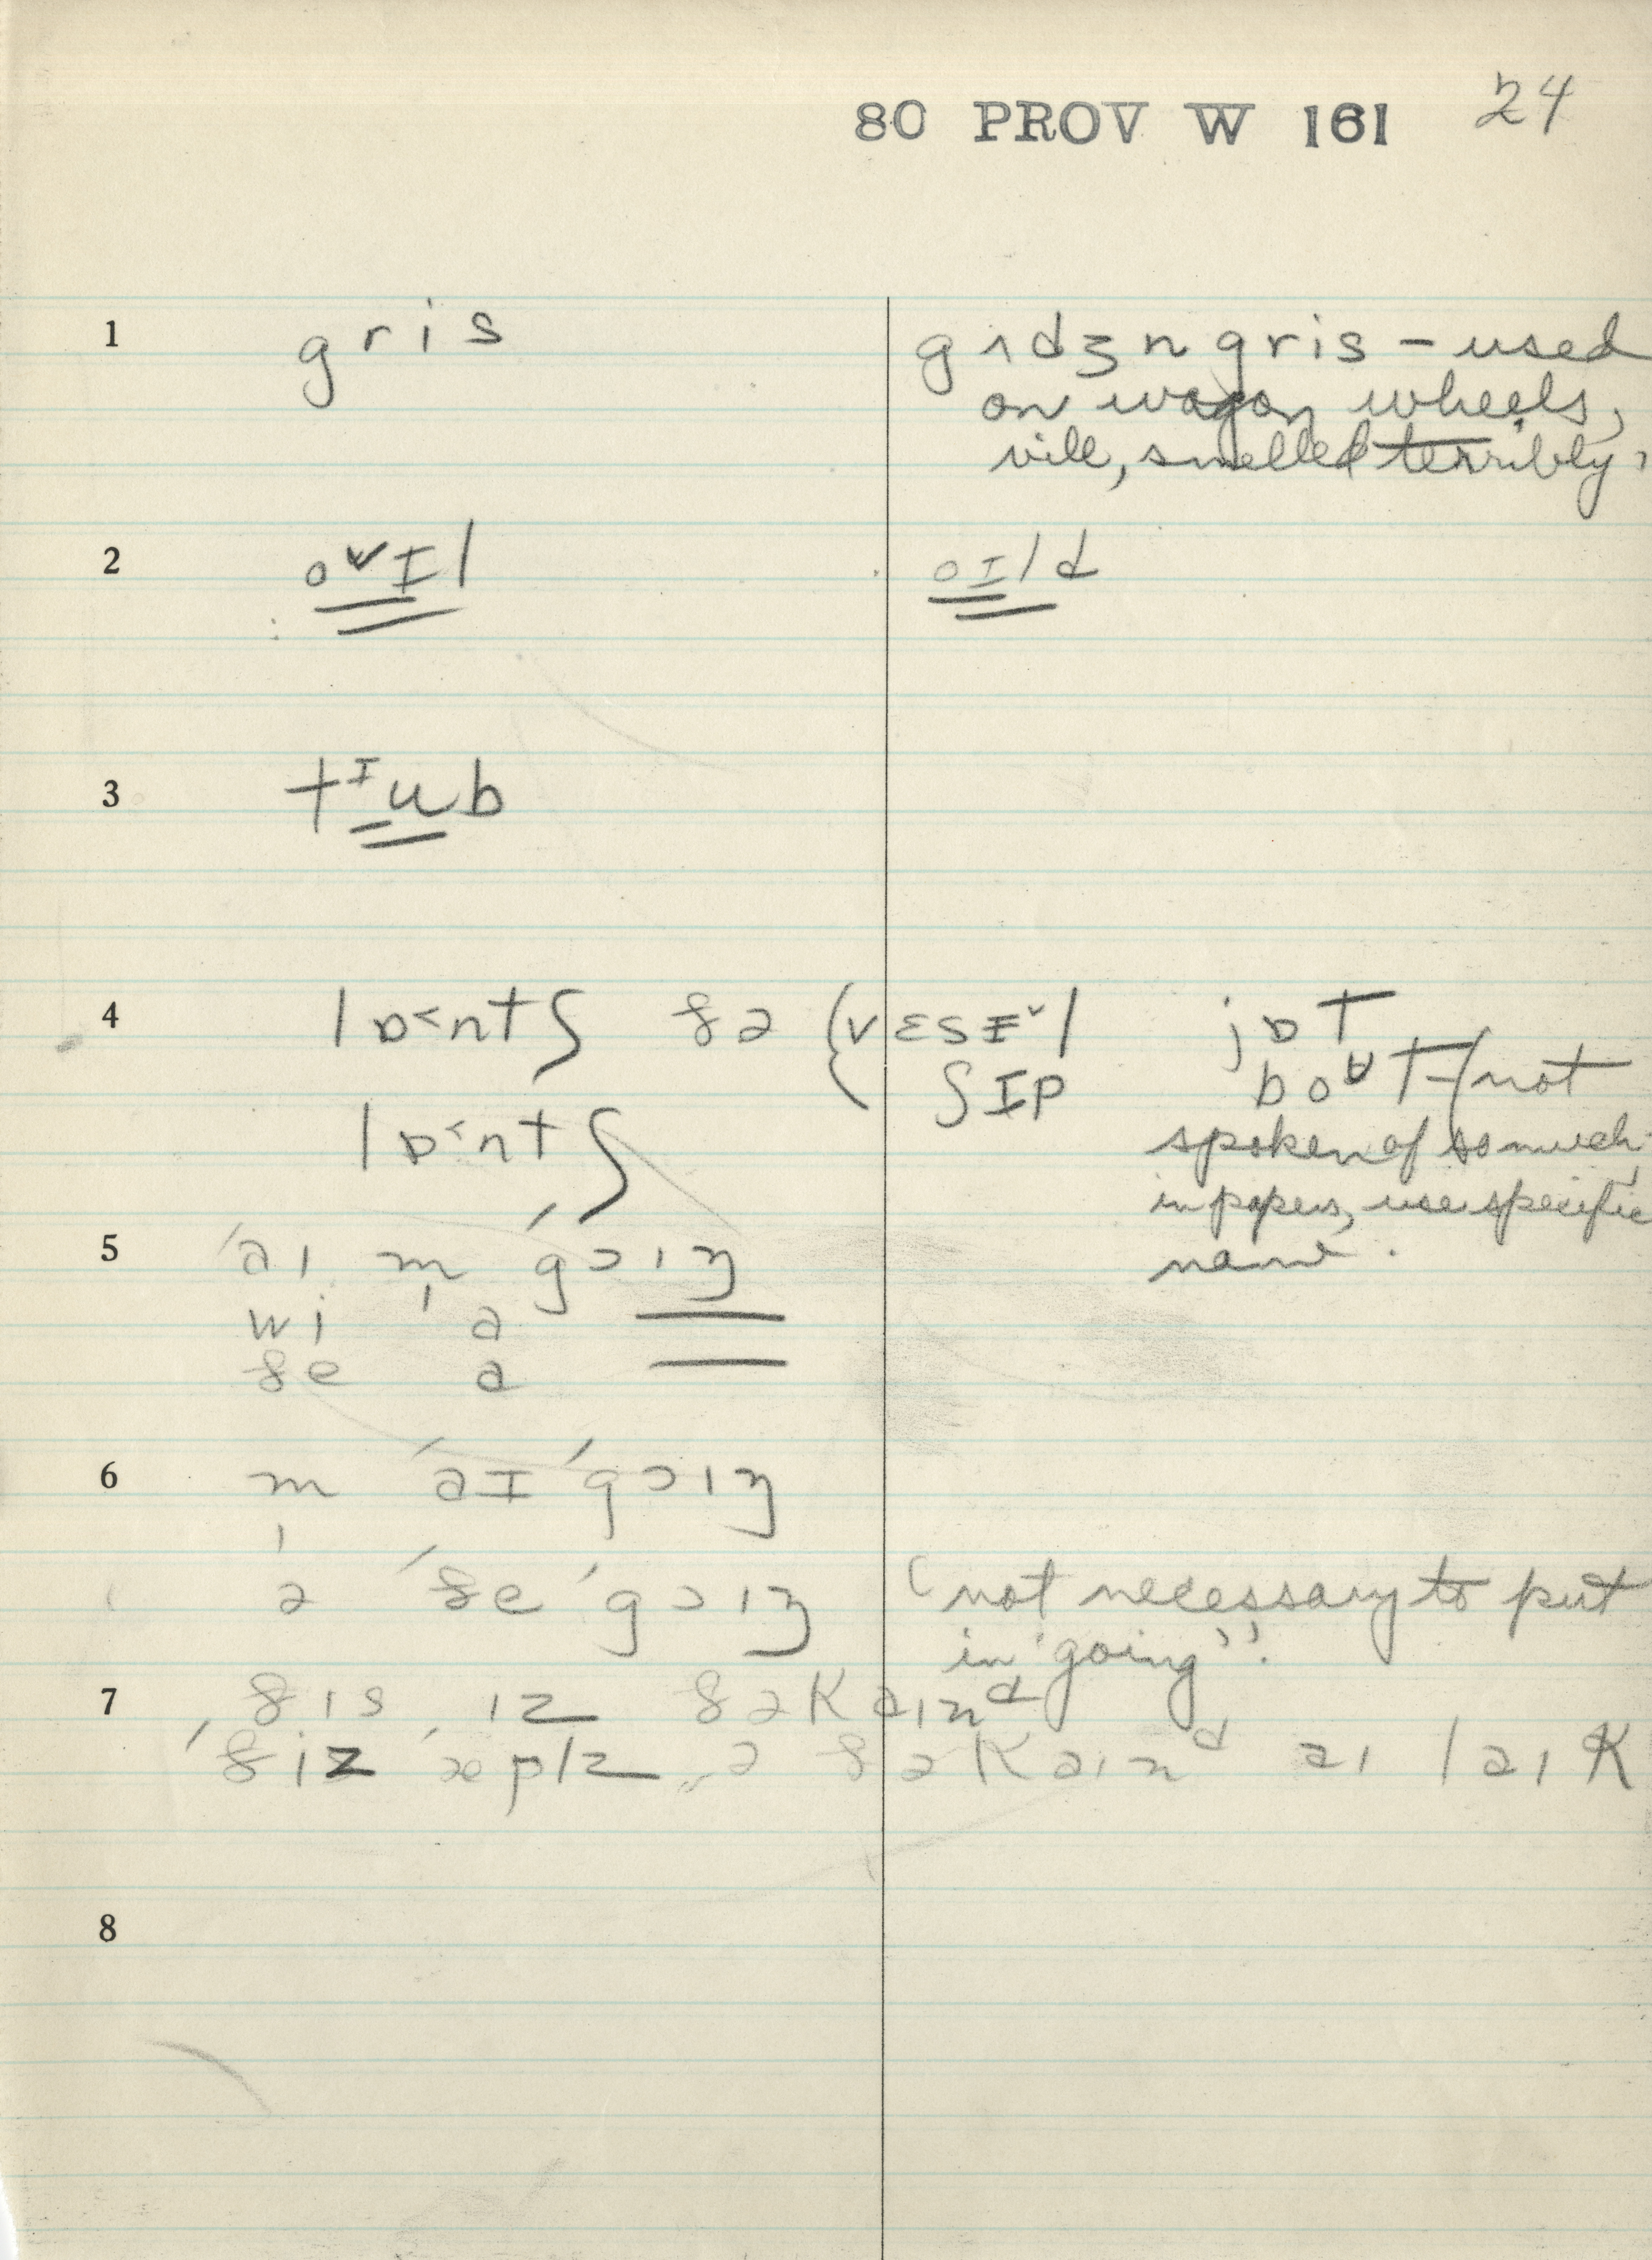 80 PROV W 161 24
1 gris gɪdʒn gris – used
on wagon wheels,
vile, smelled terribly,
2 o˅ɪl oɪld
3 tᶦub
4 lɒ˂ntʃ ðə { vɛsɪ˅l jɒt
ʃɪp boᶷt (not
lɒ˂ntʃ spoken of so much
in papers, use specific
name.
5 ˈaɪ m̩ ˈgɔɪŋ
wi a
ðe a
6 m̩ ˈaɪ ˈgɔɪŋ
ə ˈðe ˈgɔɪŋ (not necessary to put
in 'going'.
7 ˈðɪs ɪz ðə kaɪnᵈ
ˈðiz ˈæplz ə ðə kaɪnᵈ aɪ laɪk
8